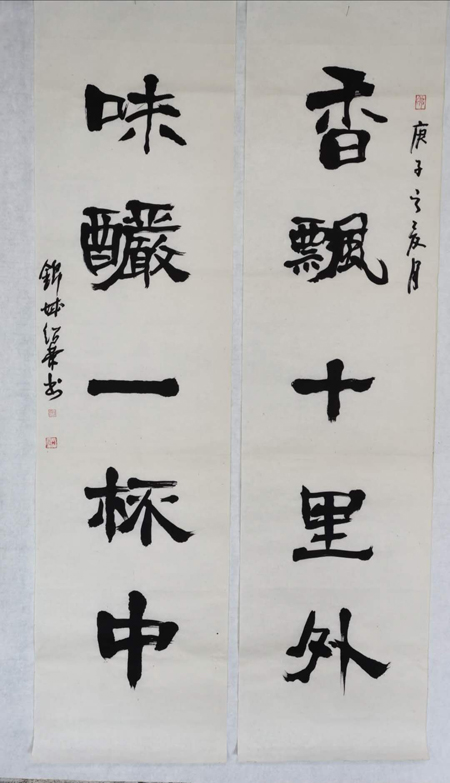 庚子之月
香飄十里外
味釅一杯中
錦城书